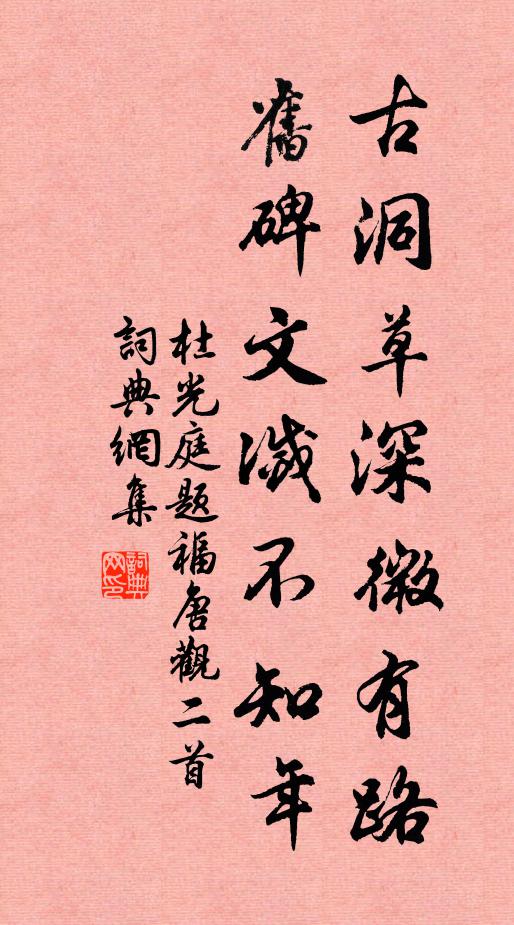 古洞草深微有路
舊碑文滅不知年
杜光庭題福唐觀二首
詞典網集
詞典
网印